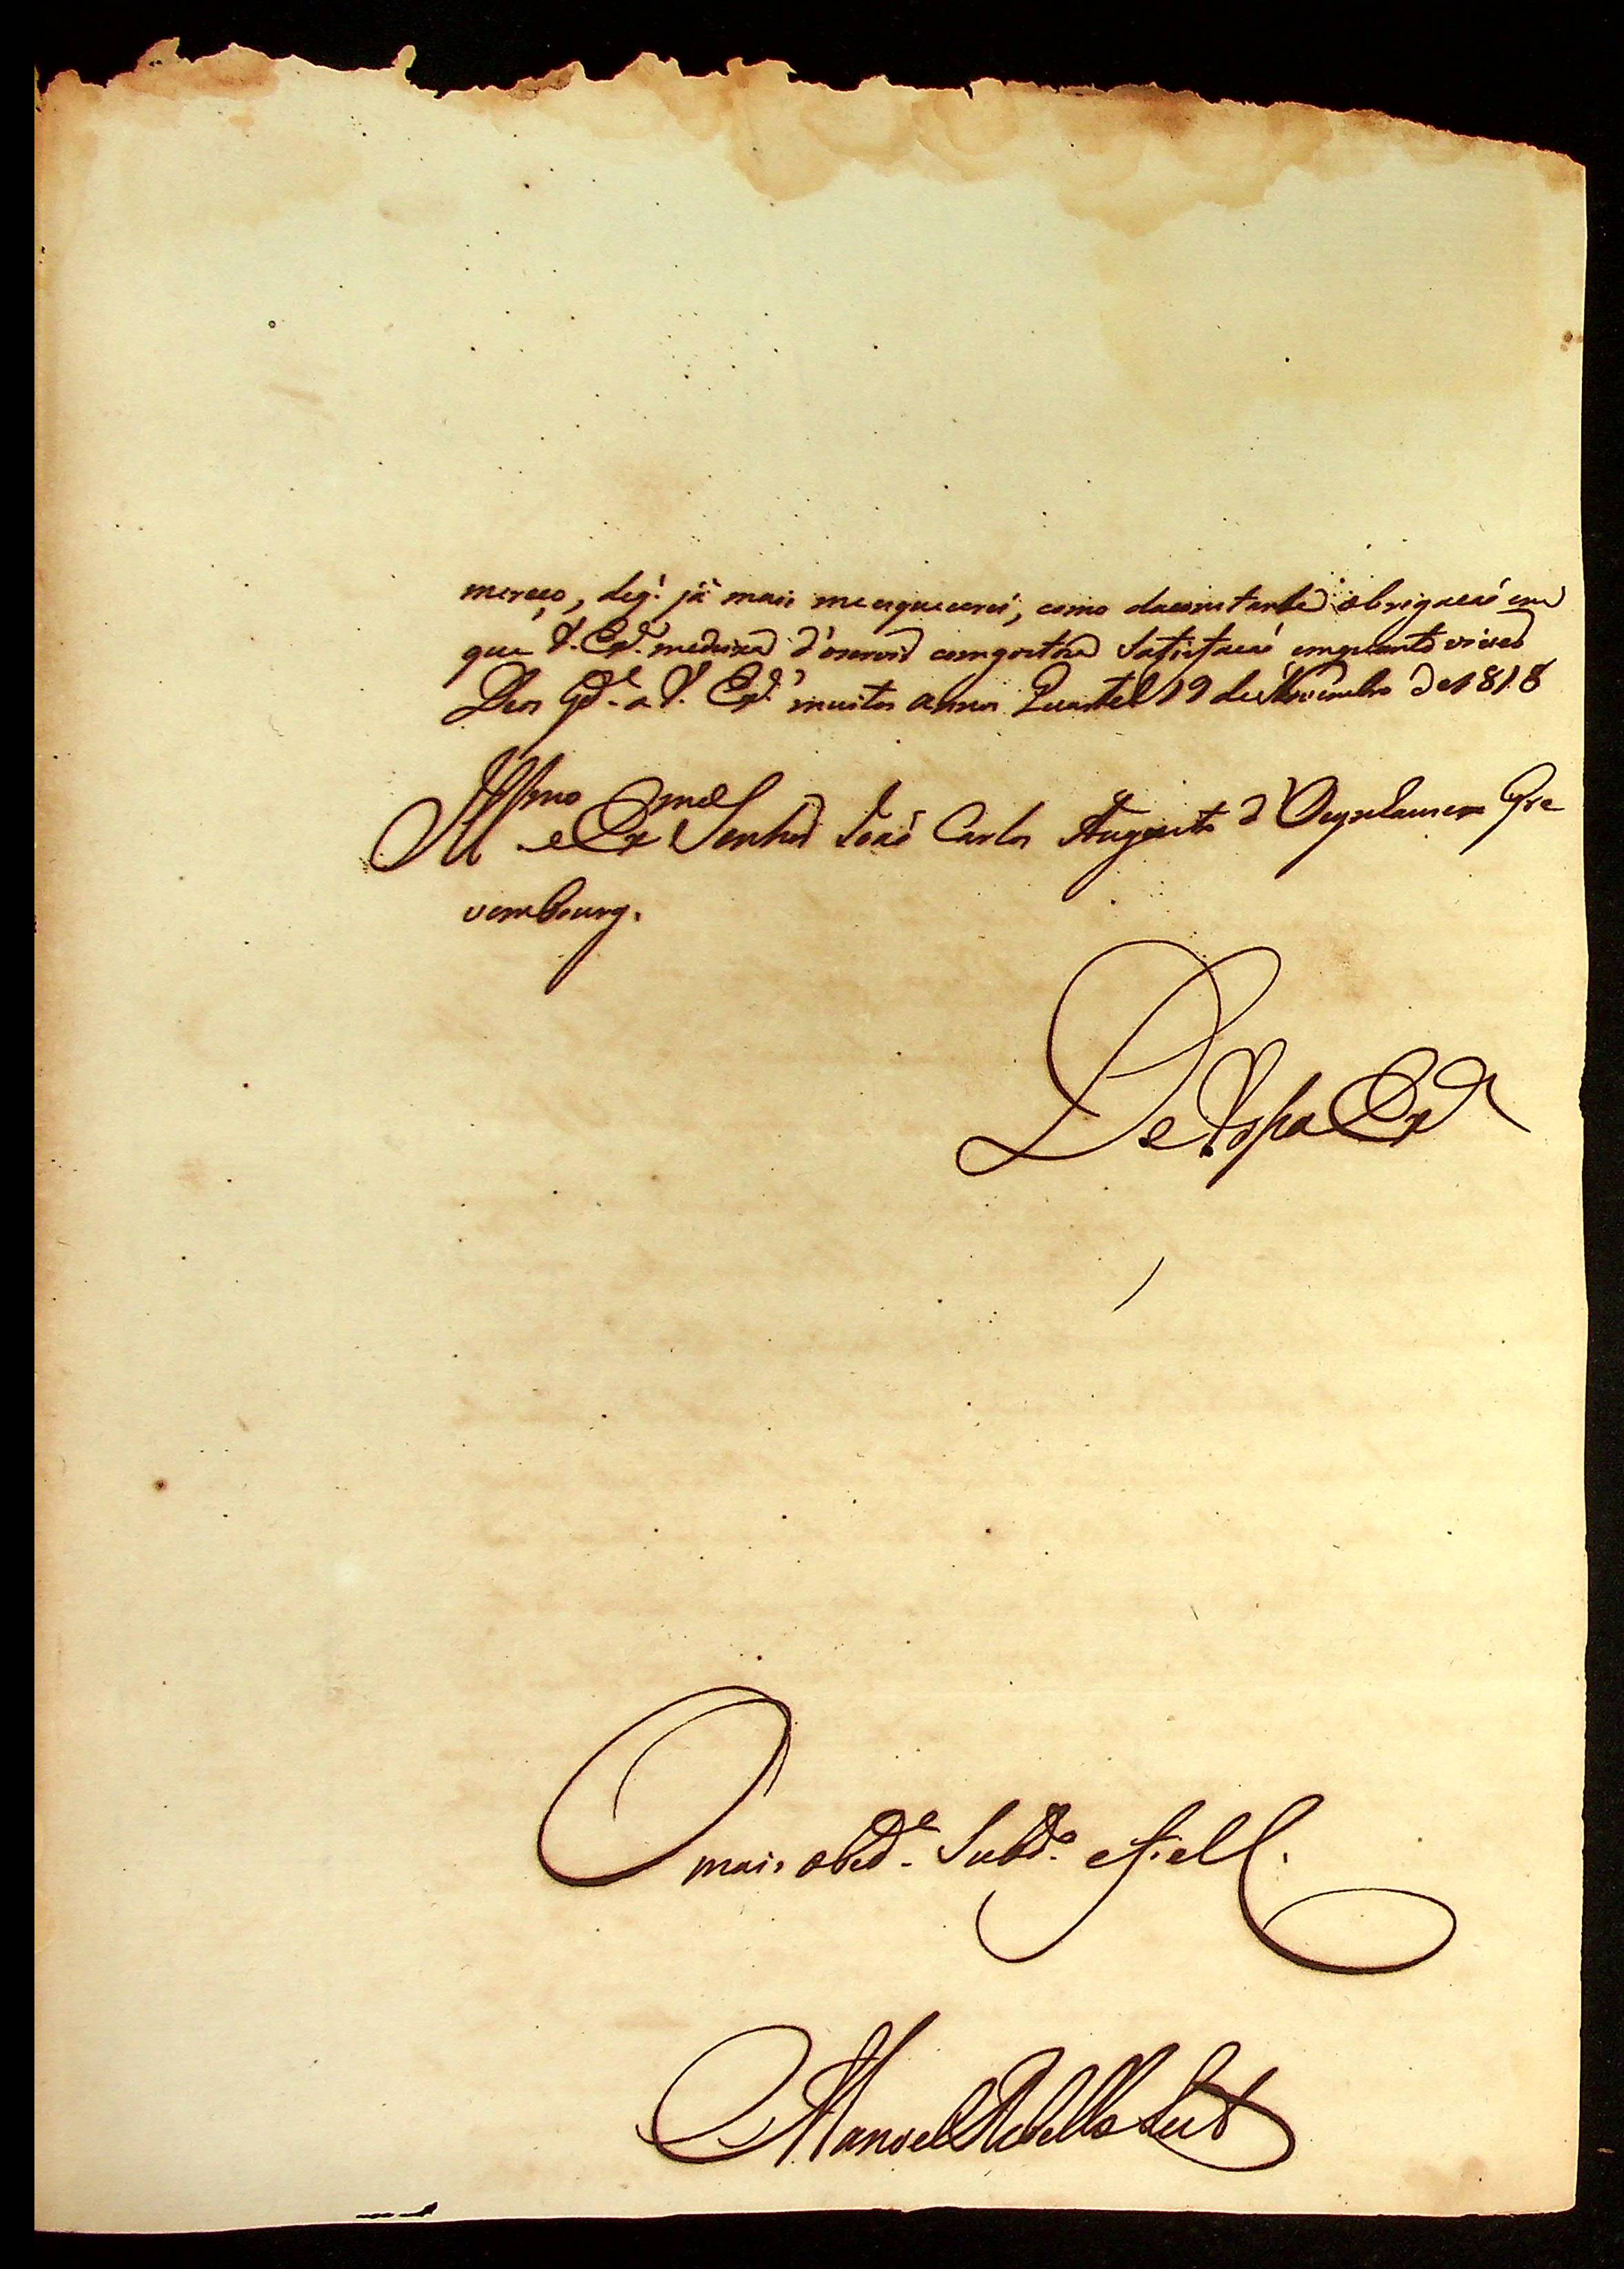 mereço, deq.' já mais meesquecerei, como daconstante obrigacaó em
que V. Ex.ª medeixa d'oservir comgostoza Satisfacaó emquanto viver
Deos Gd.e a V. Ex.ª muitos annos Quartel 19 de Novembro de 1818
Illmo e Exmo Senhor Joaó Carlos Augusto d'Oeynhausen Gre
vembourg.
De Vossa Exª
O mais obed.e Subd.º efiell.
Manoel Rebello Leite